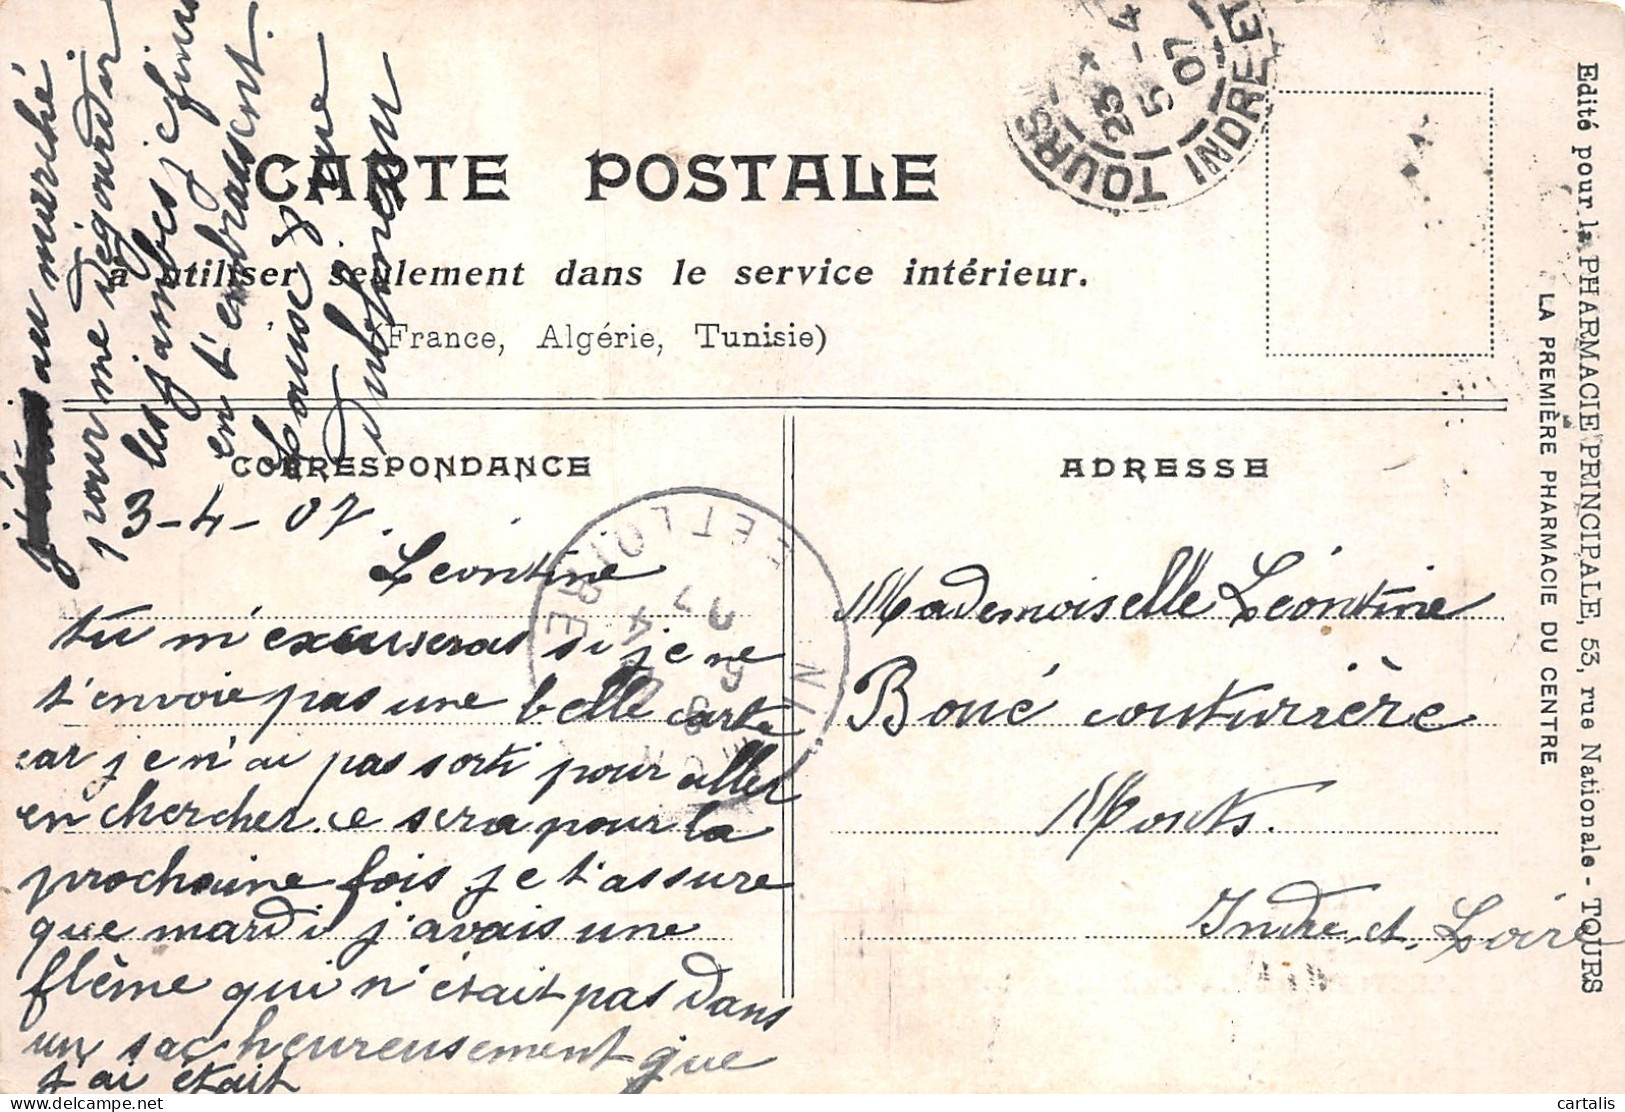 CARTE POSTALE
à utiliser seulement dans le service intérieur.
(France, Algérie, Tunisie)
CORRESPONDANCE
3-4-07.
Léontine
tu m'excuseras si je ne
t'envoie pas une belle carte
car je n'ai pas sorti pour aller
en chercher. ce sera pour la
prochaine fois je t'assure
que mardi j'avais une
flème qui n'était pas dans
un sac heureusement que
j'ai était
au marché
pour me dégourdir
les jambes je finis
en t'embrassant.
ADRESSE
Mademoiselle Léontine
Boué couturière
Monts.
Indre et Loire
TOURS INDRE ET
23 *
5 - 4
07
ET LOIRE
5
4
07
Edité pour la PHARMACIE PRINCIPALE, 53, rue Nationale - TOURS
LA PREMIÈRE PHARMACIE DU CENTRE
cartalis